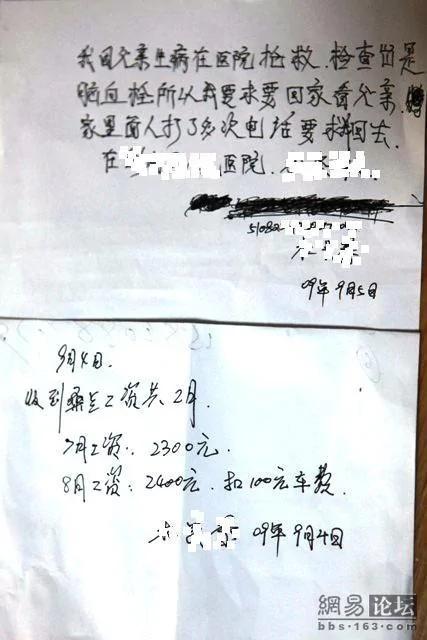 我因父亲生病在医院抢救.检查出是
脑血栓所以我要求要回家看父亲.
家里面人打了多次电话要求我回去.
在 医院.
09年9月5日
9月4日.
收到 工资共2月.
7月工资: 2300元.
8月工资: 2400元. 扣100元车费.
09年9月4日
網易 论坛
bbs.163.com